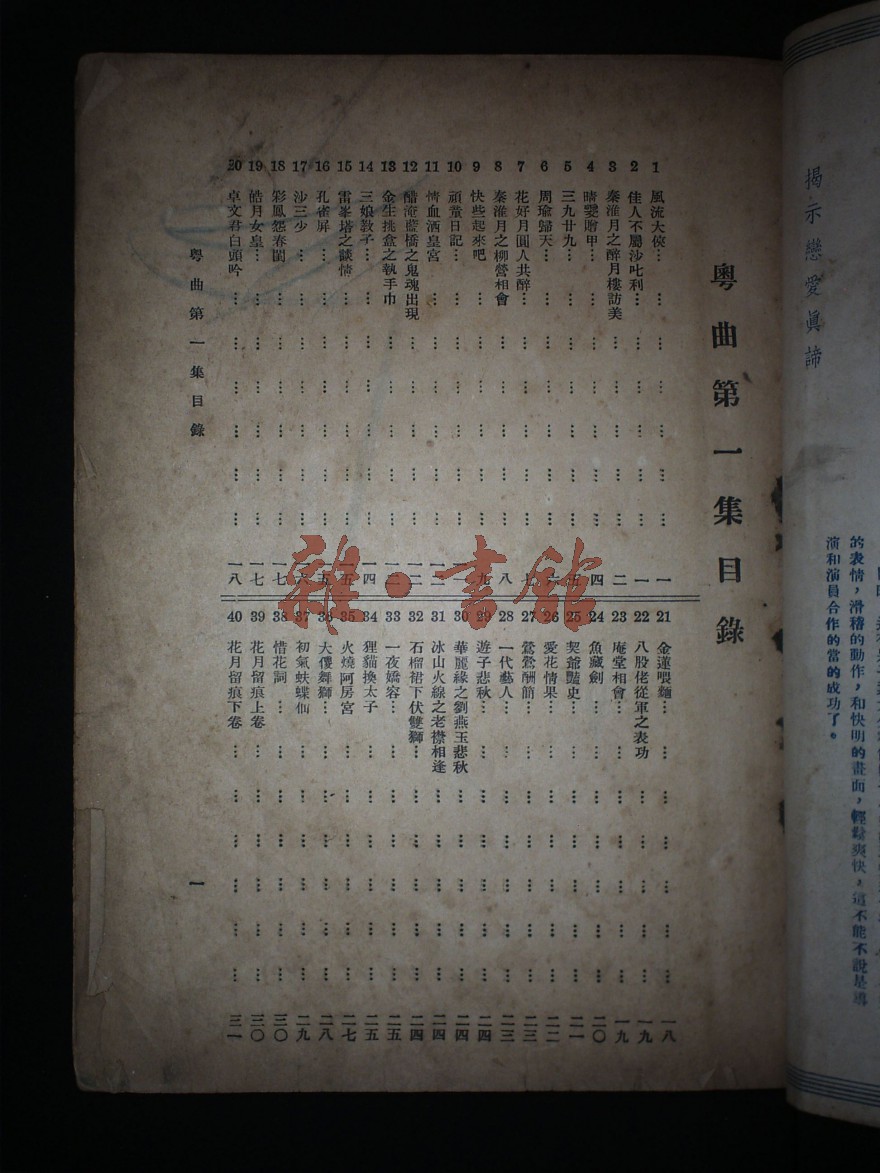 揭示戀愛眞諦
的表情，滑稽的動作，和快明的畫面，輕鬆爽快，這不能不說是導
演和演員合作的當的成功了。
粵曲第一集目錄
1 風流大俠……………………一
2 佳人不屬沙叱利……………………一
3 秦淮月之醉月樓訪美……………………二
4 晴雯贈甲……………………四
5 三九廿九……………………五
6 周瑜歸天……………………六
7 花好月圓人共醉……………………七
8 秦淮月之柳營相會……………………八
9 快些起來吧……………………九
10 頑童日記……………………
11 情血酒皇宮……………………一二
12 酷淹藍橋之鬼魂出現……………………一二
13 金生挑盒之執手巾……………………一三
14 三娘敎子……………………一四
15 雷峯塔之談情……………………一五
16 孔雀屏……………………一五
17 沙三少……………………一六
18 彩鳳怨春閨……………………一七
19 皓月女皇……………………一七
20 卓文君白頭吟……………………一八
21 金蓮喂麵……………………一八
22 八股佬從軍之表功……………………一九
23 庵堂相會……………………一九
24 魚藏劍……………………二〇
25 契爺豔史……………………二一
26 愛花情果……………………二二
27 鶯鶯酬簡……………………二三
28 一代藝人……………………二三
29 遊子悲秋……………………二四
30 華麗緣之劉燕玉悲秋……………………二四
31 冰山火線之老襟相逢……………………二四
32 石榴裙下伏雙獅……………………二四
33 一夜嬌容……………………二五
34 狸貓換太子……………………二五
35 火燒阿房宮……………………二七
36 大儍舞獅……………………二八
37 初氣蚨蝶仙……………………二九
38 惜花詞……………………三〇
39 花月留痕上卷……………………三〇
40 花月留痕下卷……………………三一
粵曲第一集目錄
一
雜·書館